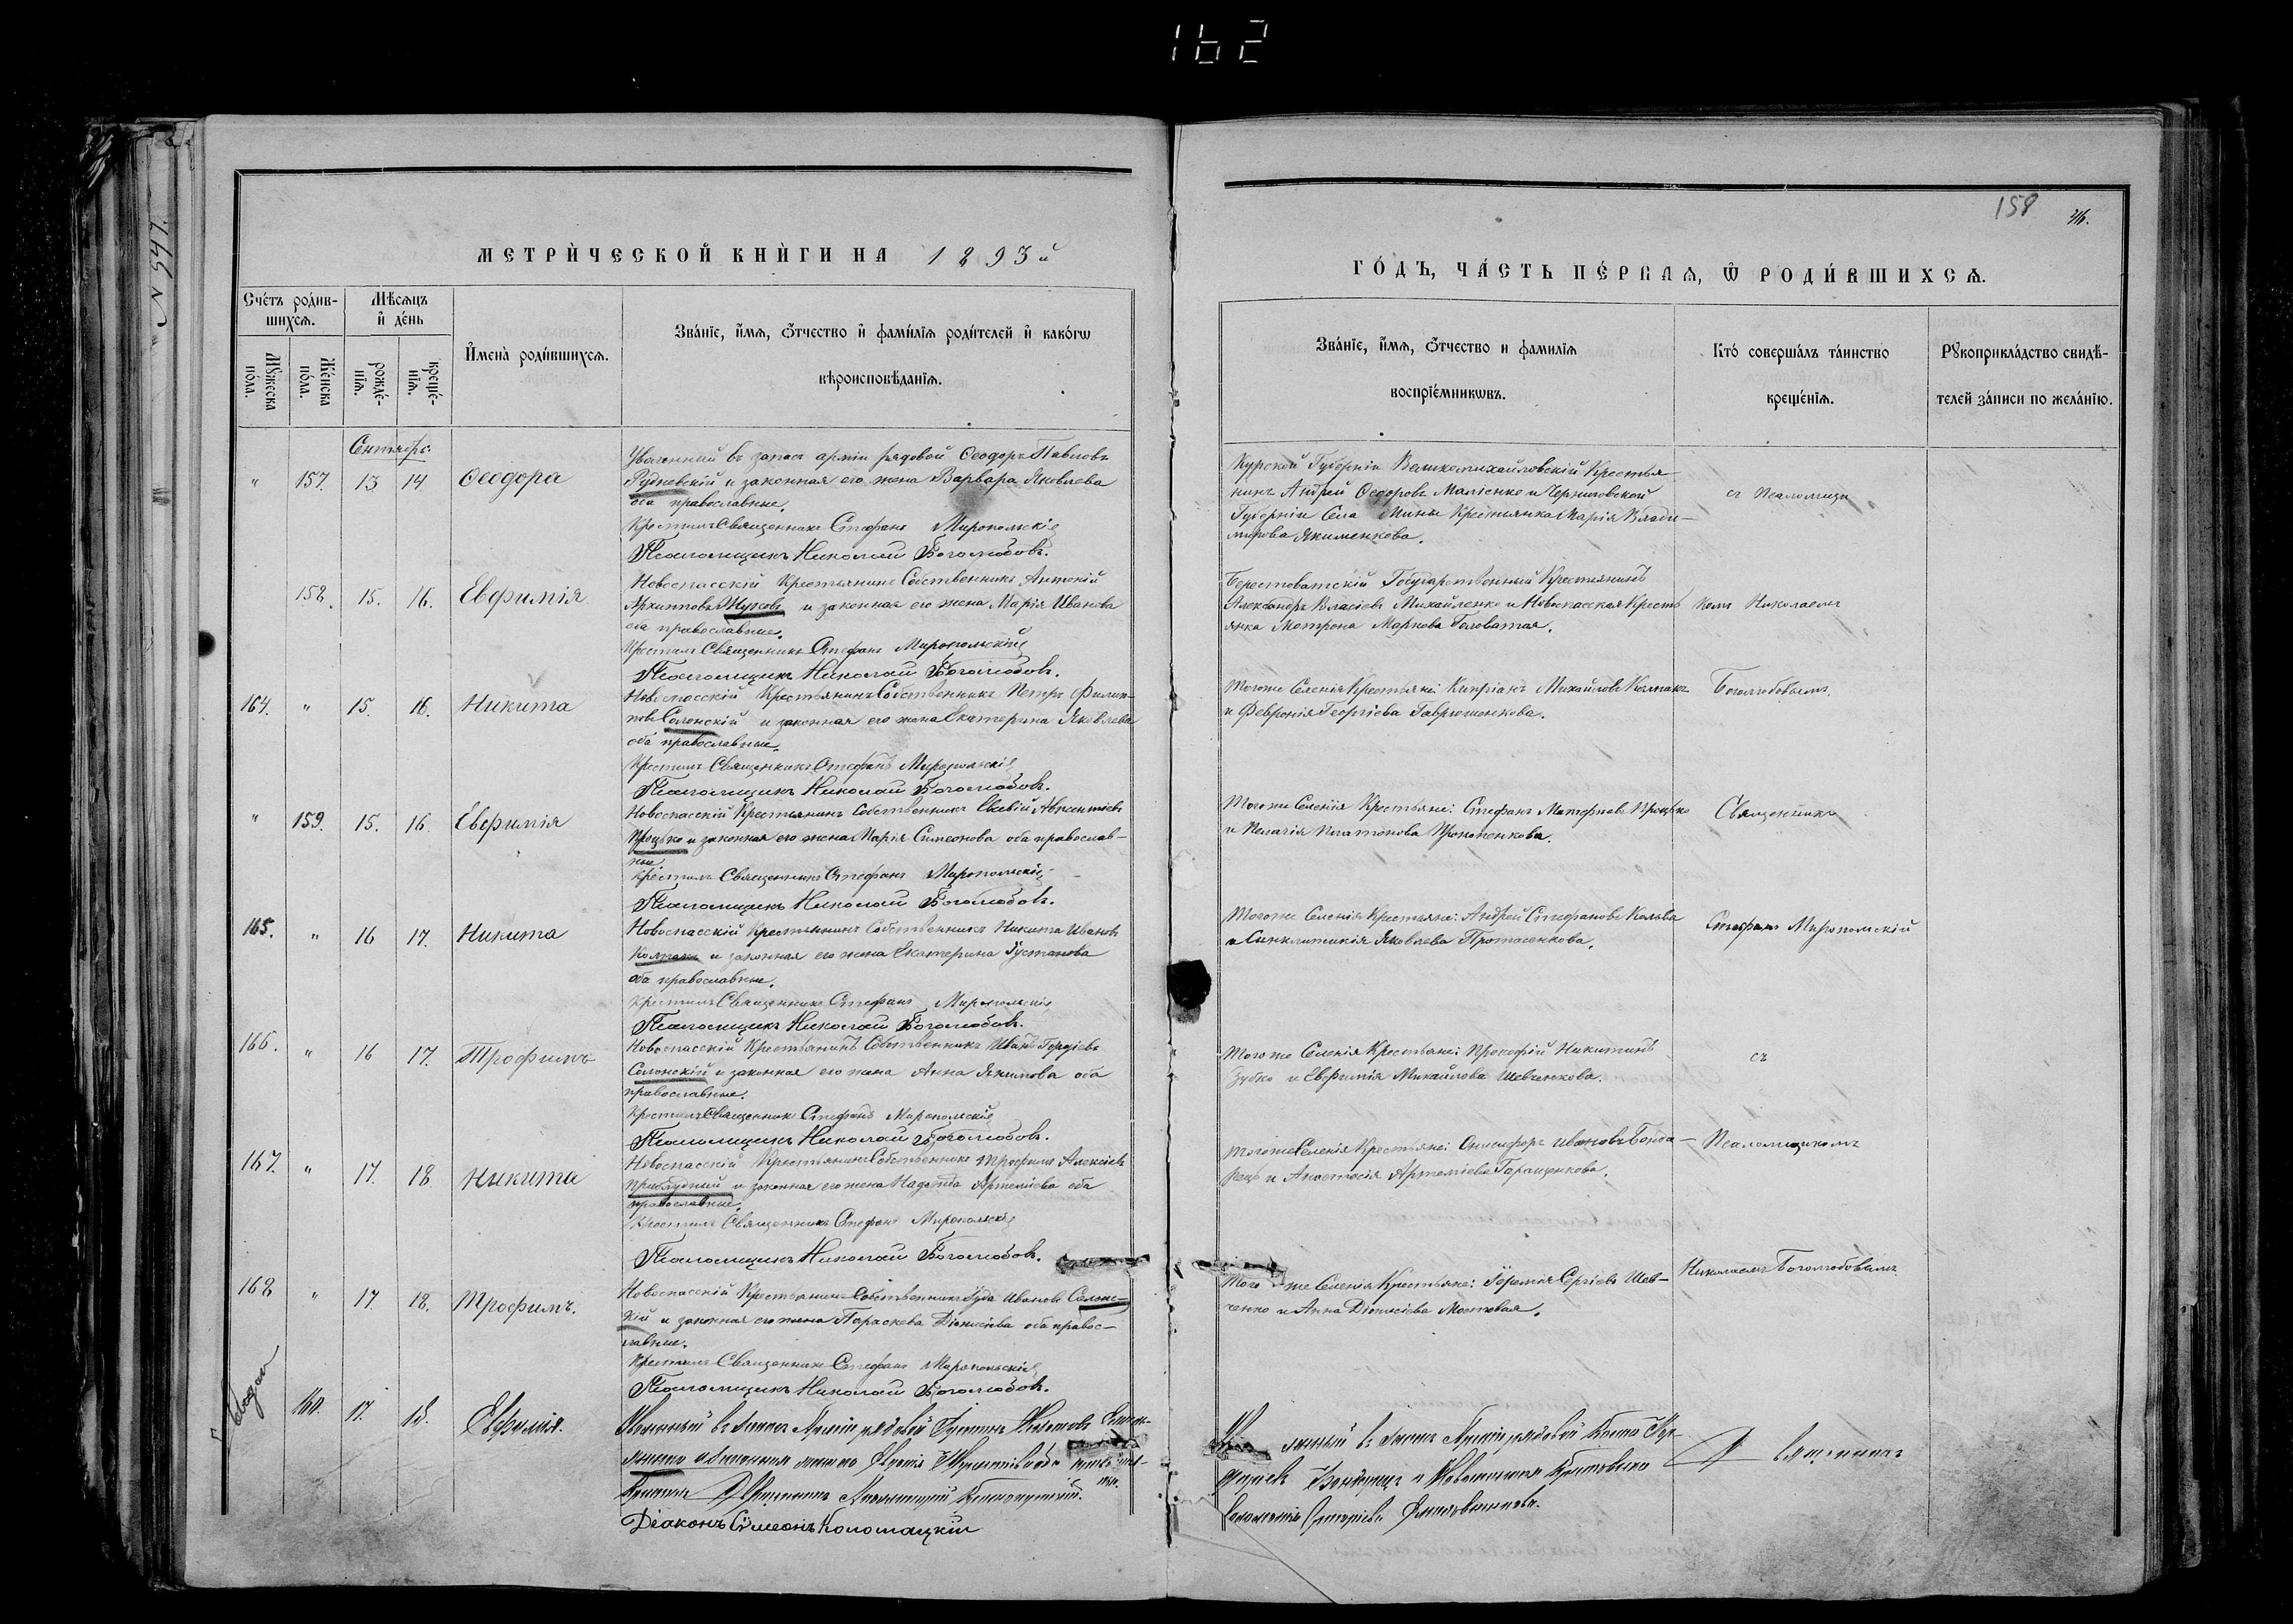 162
N 547.
МЕТРИЧЕСКОЙ КНИГИ НА 1893й
Счетъ родившихся.
Мужеска пола.
Женска пола.
Мѣсяцъ и день
рожденія.
крещенія.
Имена родившихся.
Званіе, имя, отчество и фамилія родителей и какогω
вѣроисповѣданія.
Сентябрь.
" 157. 13 14 Ѳеодора
Уволенный въ запасъ арміи рядовой Ѳеодоръ Павловъ
Рудневскій и законная его жена Варвара Яковлева
оба православные.
Крестилъ Священникъ Стефанъ Миропольскій
Псаломщикъ Николай Боголюбовъ.
158. 15. 16. Евфимія
Новоспасскій Крестьянинъ Собственникъ Антоній
Архиповъ Жуковъ и законная его жена Марія Иванова
оба православные.
Крестилъ Священникъ Стефанъ Миропольскій
Псаломщикъ Николай Боголюбовъ.
164. " 15. 16. Никита
Новоспасскій Крестьянинъ Собственникъ Петръ Филип-
повъ Солонскій и законная его жена Екатерина Яковлева
оба православные.
Крестилъ Священникъ Стефанъ Миропольскій
Псаломщикъ Николай Боголюбовъ.
" 159. 15. 16. Евфимія
Новоспасскій Крестьянинъ Собственникъ Евсевій Авксентіевъ
Процько и законная его жена Марія Симеонова оба православ-
ные.
Крестилъ Священникъ Стефанъ Миропольскій
Псаломщикъ Николай Боголюбовъ.
165. " 16 17. Никита
Новоспасскій Крестьянинъ Собственникъ Никита Ивановъ
Колпакъ и законная его жена Екатерина Густанова
оба православные.
Крестилъ Священникъ Стефанъ Миропольскій
Псаломщикъ Николай Боголюбовъ.
166. " 16 17. Трофимъ
Новоспасскій Крестьянинъ Собственникъ Иванъ Гордіевъ
Солонскій и законная его жена Анна Якимова оба
православные.
Крестилъ Священникъ Стефанъ Миропольскій
Псаломщикъ Николай Боголюбовъ.
167. " 17. 18. Никита
Новоспасскій Крестьянинъ Собственникъ Трофимъ Алексіевъ
Приблудный и законная его жена Надежда Артеміева оба
православные.
Крестилъ Священникъ Стефанъ Миропольскій
Псаломщикъ Николай Боголюбовъ.
168 " 17. 18. Трофимъ.
Новоспасскій Крестьянинъ Собственникъ Іуда Ивановъ Солонс-
кій и законная его жена Параскева Діонисіева оба правос-
лавные.
Крестилъ Священникъ Стефанъ Миропольскій
Псаломщикъ Николай Боголюбовъ.
160. 17. 18. Евфимія.
Уволенный въ запасъ Арміи рядовой
и законная жена его
Крестилъ Священникъ
Діаконъ Симеонъ Коломацкій
158
ГОДЪ, ЧАСТЬ ПЕРВАЯ, Ѡ РОДИВШИХСЯ.
Званіе, имя, отчество и фамилія
воспріемникωвъ.
Кто совершалъ таинство
крещенія.
Рукоприкладство свидѣ-
телей записи по желанію.
Курской Губерніи Великомихайловскій Крестья-
нинъ Андрей Ѳеодоровъ Маліенко и Черниговской
Губерніи Села Мины Крестьянка Марія Влади-
мирова Якименкова.
съ Псаломщи
Берестоватскій Государственный Крестьянинъ
Александръ Власіевъ Михайленко и Новоспасская Кресть
янка Матрона Маркова Головатая.
комъ Николаемъ
Тогоже Селенія Крестьяне: Кипріанъ Михайловъ Колпакъ
и Февронія Георгіева Гаврюшенкова.
Боголюбовымъ.
Тогоже Селенія Крестьяне: Стефанъ Матфеевъ Процько
и Пелагія Платонова Прокопенкова.
Священникъ
Тогоже Селенія Крестьяне: Андрей Стефановъ
и Синклитикія Яковлева Протасенкова.
Стефанъ Миропольскій
Того же Селенія Крестьяне: Прокофій Никитинъ
Зубко и Евфимія Михайлова Шевченкова.
съ
Тогоже Селенія Крестьяне: Онисифоръ Ивановъ Бонда-
рець и Анастасія Артеміева Геращенкова.
Псаломщикомъ
Того же Селенія Крестьяне: Іеремія Сергіевъ Шев-
ченко и Анна Діонисіева Мостовая.
Николаемъ Боголюбовымъ.
въ запасъ Арміи рядовой
Священникъ